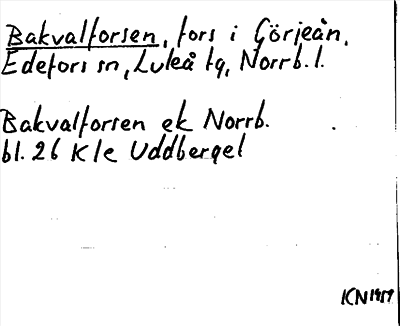 Bakvalforsen, fors i Görjeån,
Edefors sn, Luleå tg, Norrb. l.
Bakvalforsen ek Norrb.
bl. 26 Kle Uddberget
KN 1959